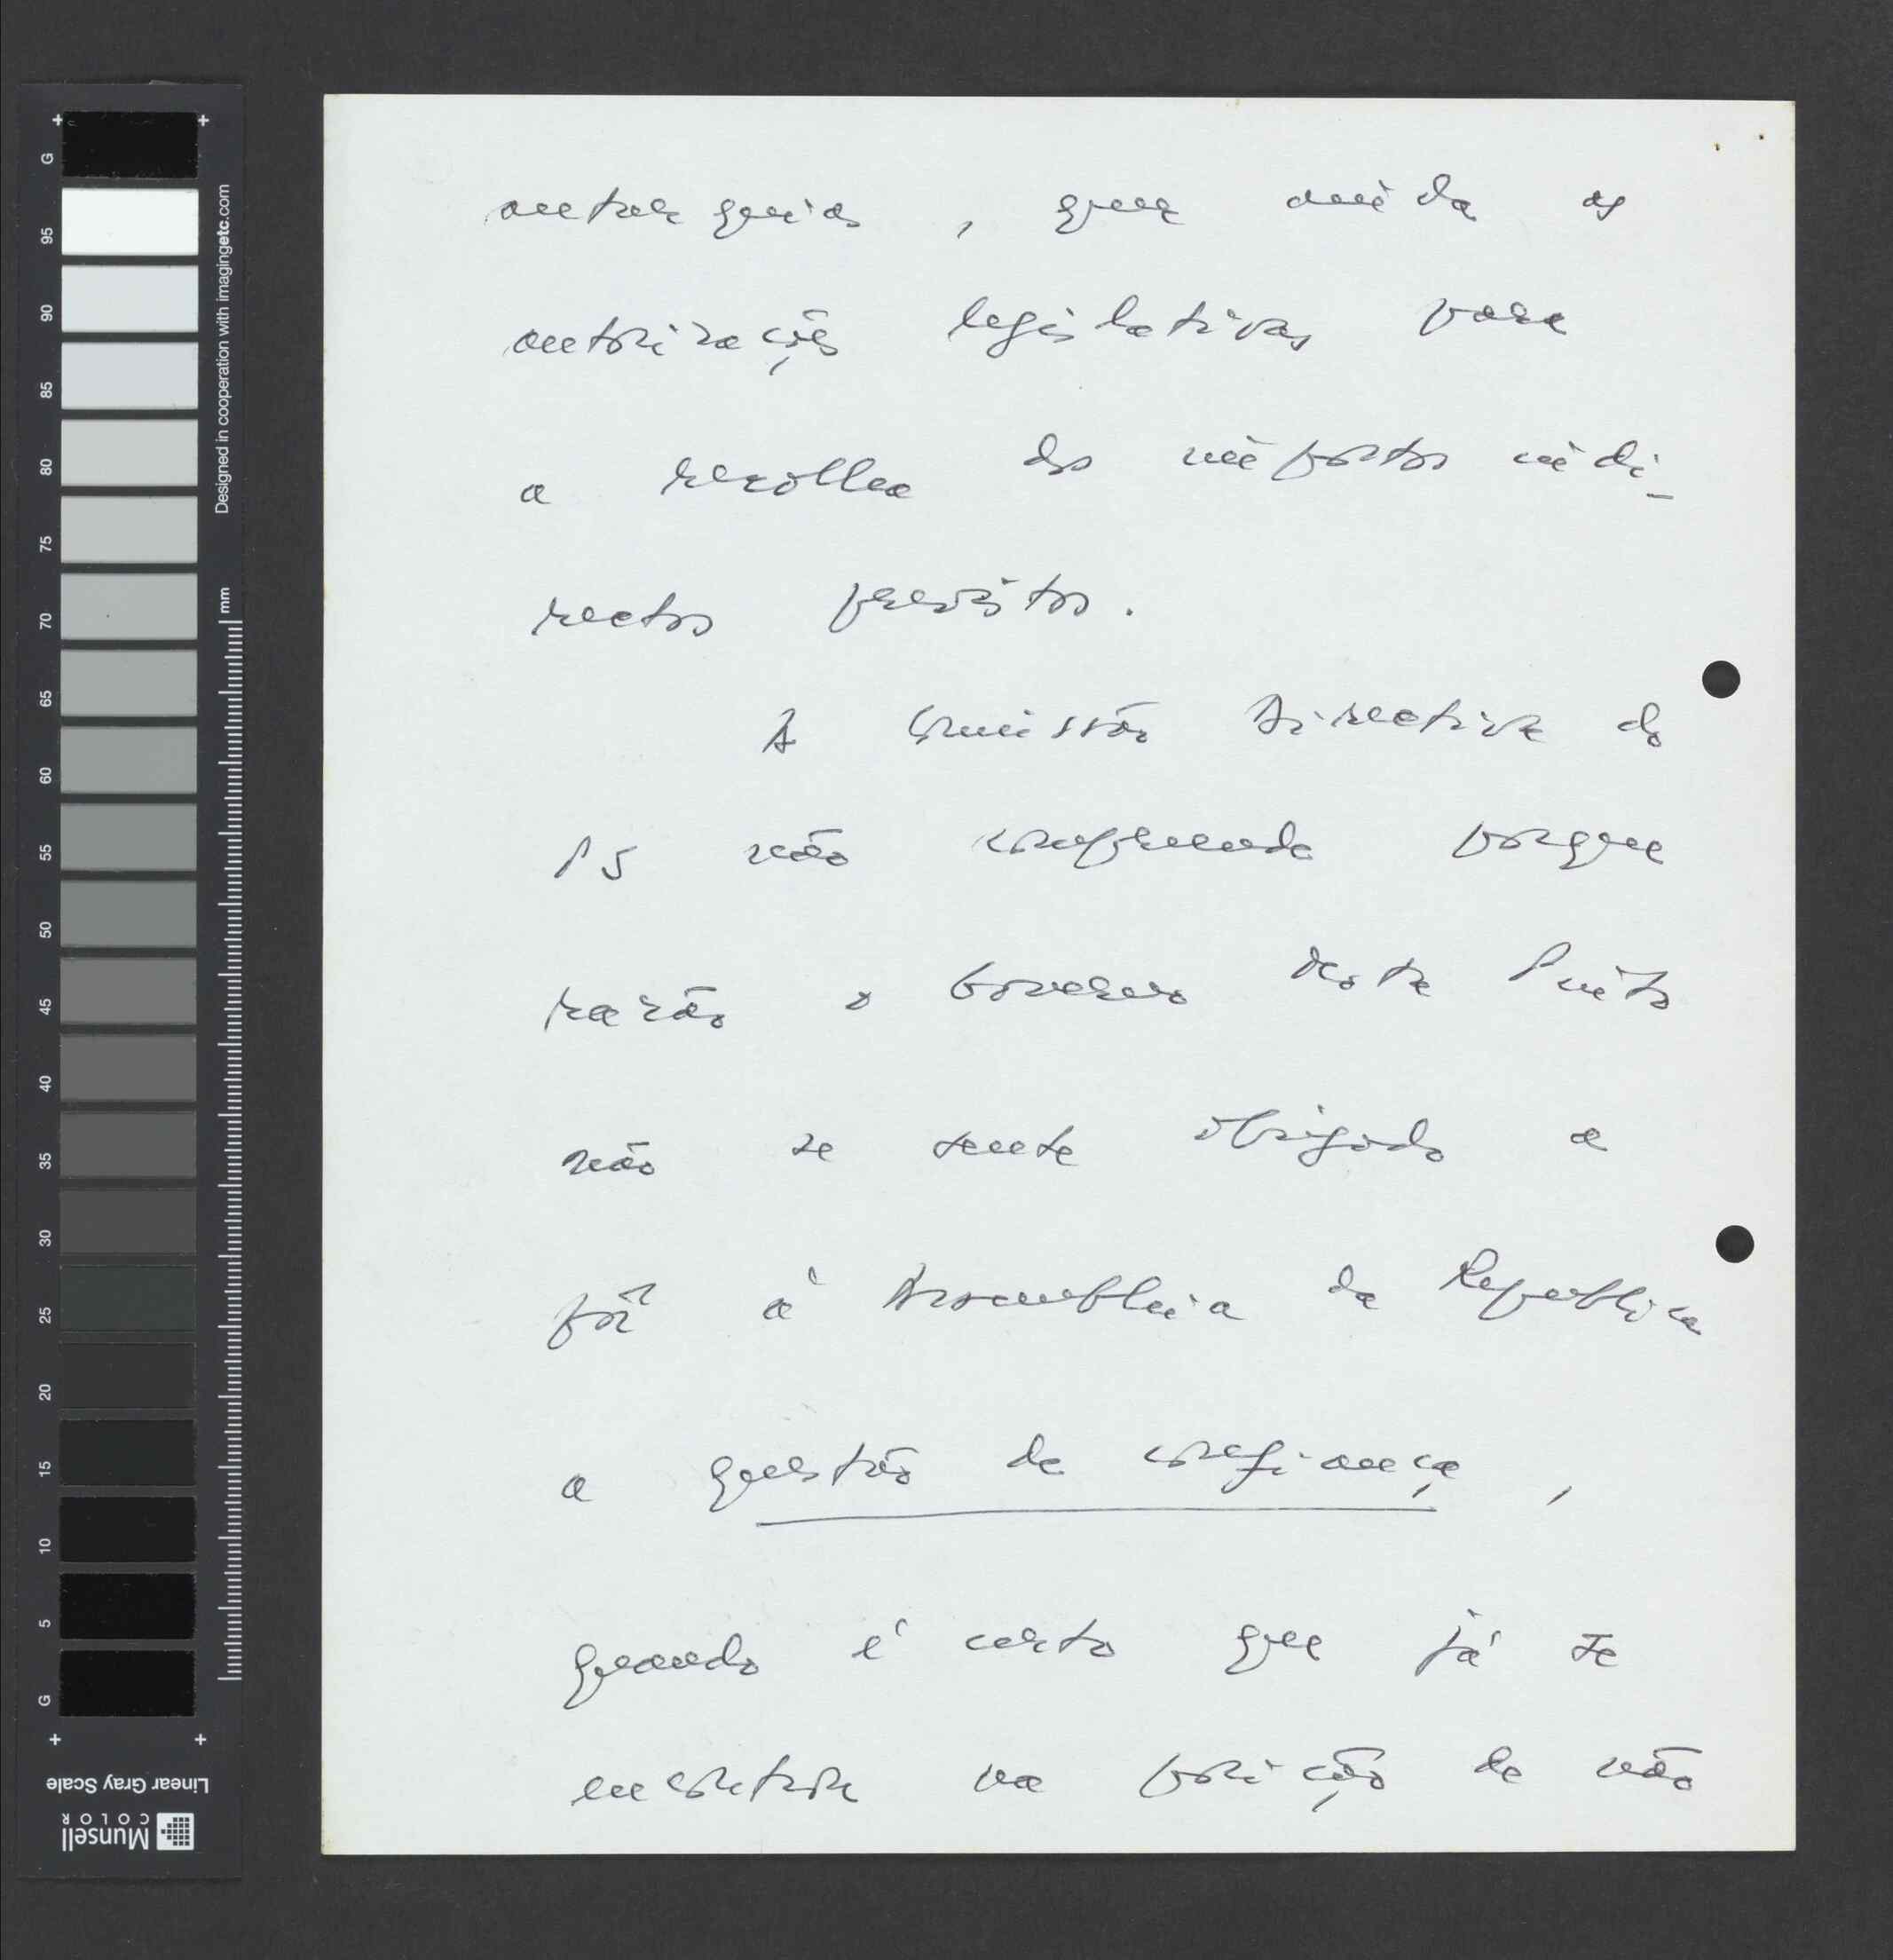 autarquias, quer ainda as
autorizações legislativas para
a recolha dos impostos indi-
rectos previstos.
A Comissão Directiva do
PS não compreende porque
razão o Governo Mota Pinto
não se sente obrigado a
pôr à Assembleia da Republica
a questão de confiança,
quando é certo que já se
encontra na posição de não
G 95 90 85 80 75 70 65 60 55 50 45 40 35 30 25 20 15 10 5 G
Designed in cooperation with imagingetc.com
mm
Linear Gray Scale
Munsell
COLOR